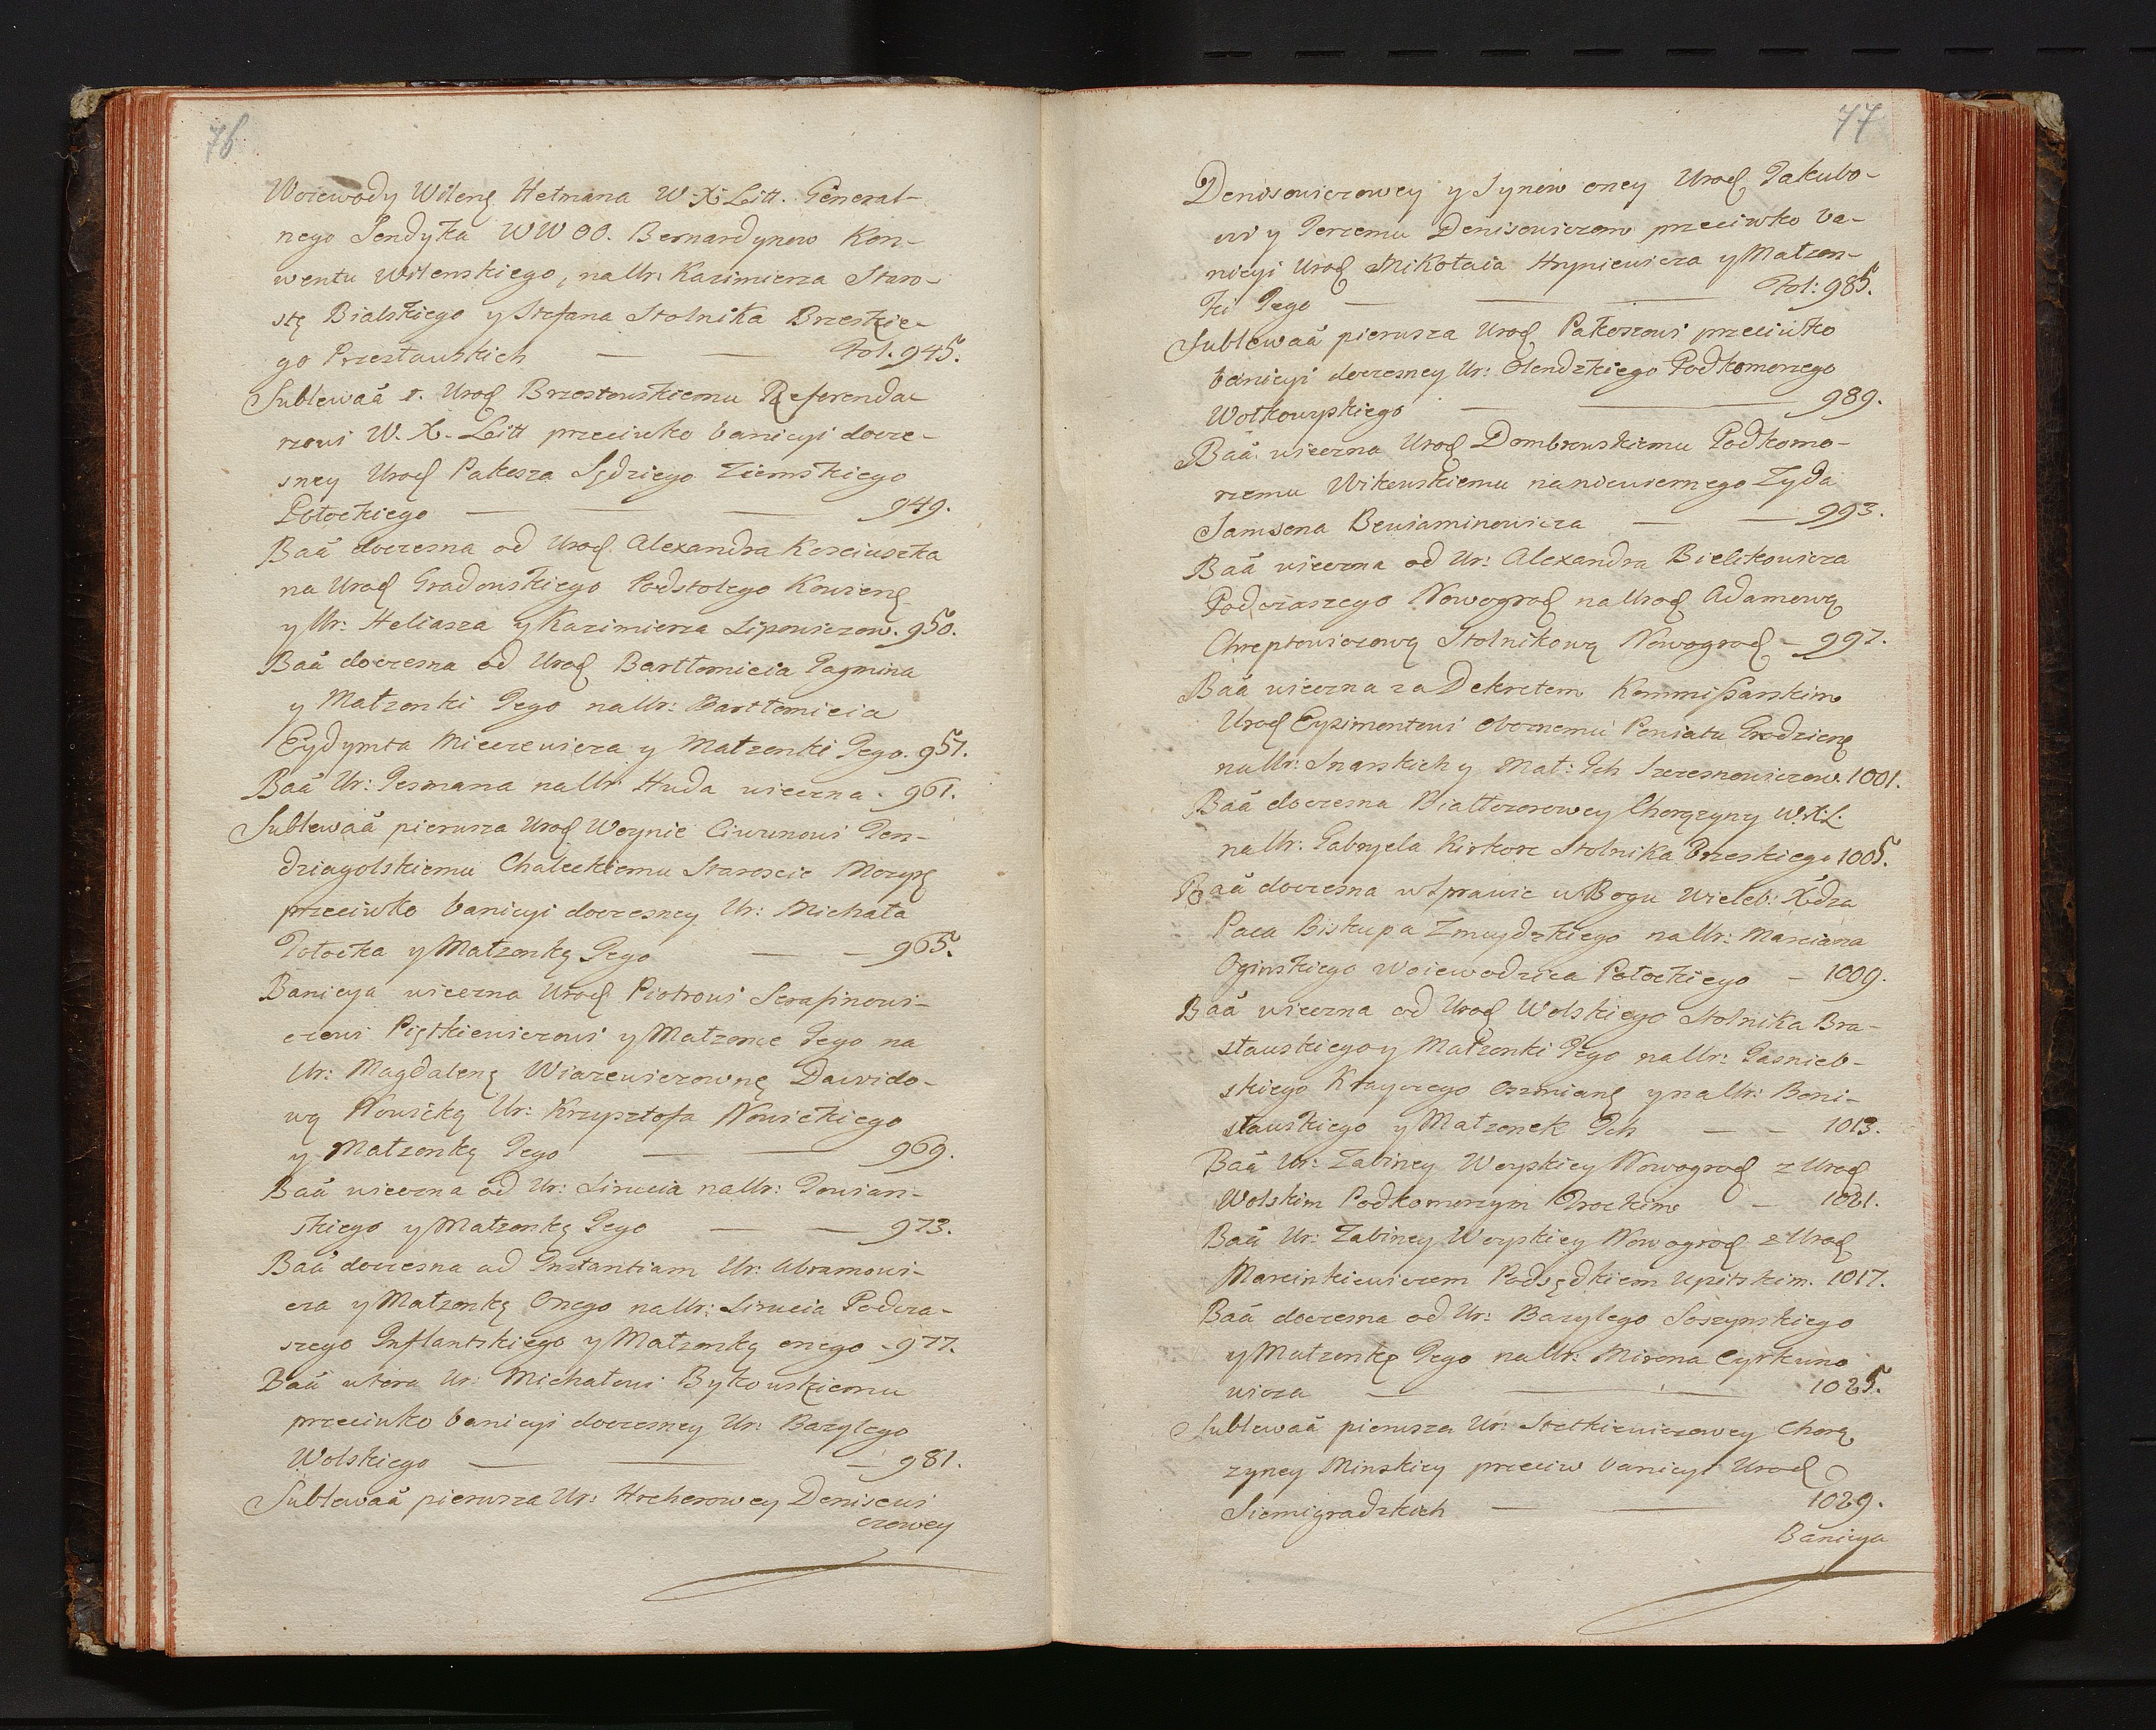 76
Woiewody Wilenſ Hetmana W. X. Litt. General-
nego Sendyka WWOO. Bernardynow Kon-
wentu Wilenskiego, na Ur: Kazimierza Staro-
stę Bialskiego y Stefana Stolnika Brzeskie-
go Przezławskich — — Fol. 945.
Sublewaã 1. Urod Brzostowskiemu Referenda-
rzowi W. X. Litt przeciwko banicyi docze-
sney Urod Pakosza Sędziego Ziemskiego
Połockiego — — 949.
Baã doczesna od Urod. Alexandra Kosciuszka
na Urod Gradowskiego Podstolego Kowienſ
y Ur: Heliasza y Kazimierza Lipowiczow. 950.
Baã doczesna od Urod Bartłomieia Jagmina
y Małżonki Jego na Ur: Bartłomieia
Eydymta Miczewicza y Małżonki Jego. 957.
Baã Ur: Jesmana na Ur Huda wieczna. 961.
Sublewaã pierwsza Urod Woynie Ciwunowi Jon-
dziagolskiemu Chaleckiemu Staroscie Mozyrſ
przeciwko banicyi doczesney Ur: Michała
Połocka y Małżonkę Jego — — 965.
Banicya wieczna Urod Piotrowi Serafinowi-
czowi Piętkiewiczowi y Małżonce Jego na
Ur: Magdalenę Wiazewiczownę Dawido-
wą Nowicką Ur: Krzysztofa Nowickiego
y Małżonkę Jego — — 969.
Baã wieczna od Ur: Lirucia na Ur: Jowian-
skiego y Małżonkę Jego — — 973.
Baã doczesna ad Instantiam Ur: Abramowi-
cza y Małżonkę Onego na Ur: Lirucia Podcza-
szego Inflantskiego y Małżonkę onego - 977.
Baã wtora Ur: Michałowi Bykowskiemu
przeciwko banicyi doczesney Ur: Bazylego
Wolskiego — — — 981.
Sublewaã pierwsza Ur: Hreherowey Denisewi
czowey
77
Denisowiczowey y Synow oney Urod Jakubo-
wi y Jerzemu Denisowiczom przeciwko ba-
nicyi Urod Mikołaia Hryniewicza y Małżon-
ki Jego — — — Fol: 985.
Sublewaã pierwsza Urod Pakoszowi przeciwko
banicyi doczesney Ur: Olendzkiego Podkomorzego
Wołkowyskiego — — 989.
Baã wieczna Urod Dombrowskiemu Podkomo-
rzemu Wikowskiemu na niewiernego Żyda
Samsona Bewiaminowicza — — 993.
Baã wieczna od Ur: Alexandra Bielikowicza
Podczaszego Nowogrod na Urod Adamową
Chreptowiczową Stolnikową Nowogrod - 997.
Baã wieczna za Dekretem Kommissarskim
Urod Eysimontowi Oboznemu Powiatu Grodzienſ
na Ur: Snarskich y Mał: Ich Szczesnowiczow. 1001.
Baã doczesna Białłozorowey Chorążyny W.X.L.
na Ur: Gabryela Kirkora Stolnika Brzeskiego 1005.
Baã doczesna w Sprawie w Bogu Wieleb: X̃dza
Paca Biskupa Zmuydzkiego na Ur: Marciana
Oginskiego Woiewodzica Połockiego — 1009.
Baã wieczna od Urod Wolskiego Stolnika Bra-
sławskiego y Małżonki Jego na Ur: Jasnieb-
skiego Krayczego Oszmianſ y na Ur: Boni-
sławskiego y Małżonek Ich — — 1013.
Baã Ur: Zabiney Woyskiey Nowogrod z Urod
Wolskim Podkomorzym Trockim — 1021.
Baã Ur: Zabiney Woyskiey Nowogrod z Urod
Marcinkiewiczem Podsędkiem Upitskim. 1017.
Baã doczesna od Ur: Bazylego Soszynskiego
y Małżonkę Jego na Ur: Mirona Cyrkuno
wicza — — 1025.
Sublewaã pierwsza Ur: Stetkiewiczowey Chorą
zyney Minskiey przeciw banicyi Urod
Siemigradzkich — — 1029.
Banicya